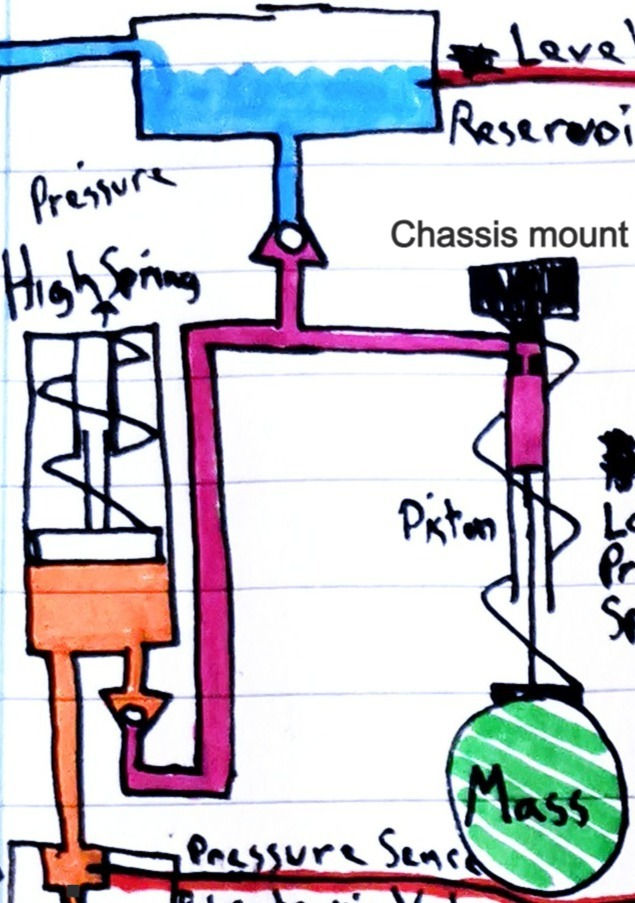 Level
Reservoi
Pressure
Chassis mount
High Spring
Piston
Lo
Pr
Sp
Mass
Pressure Sence